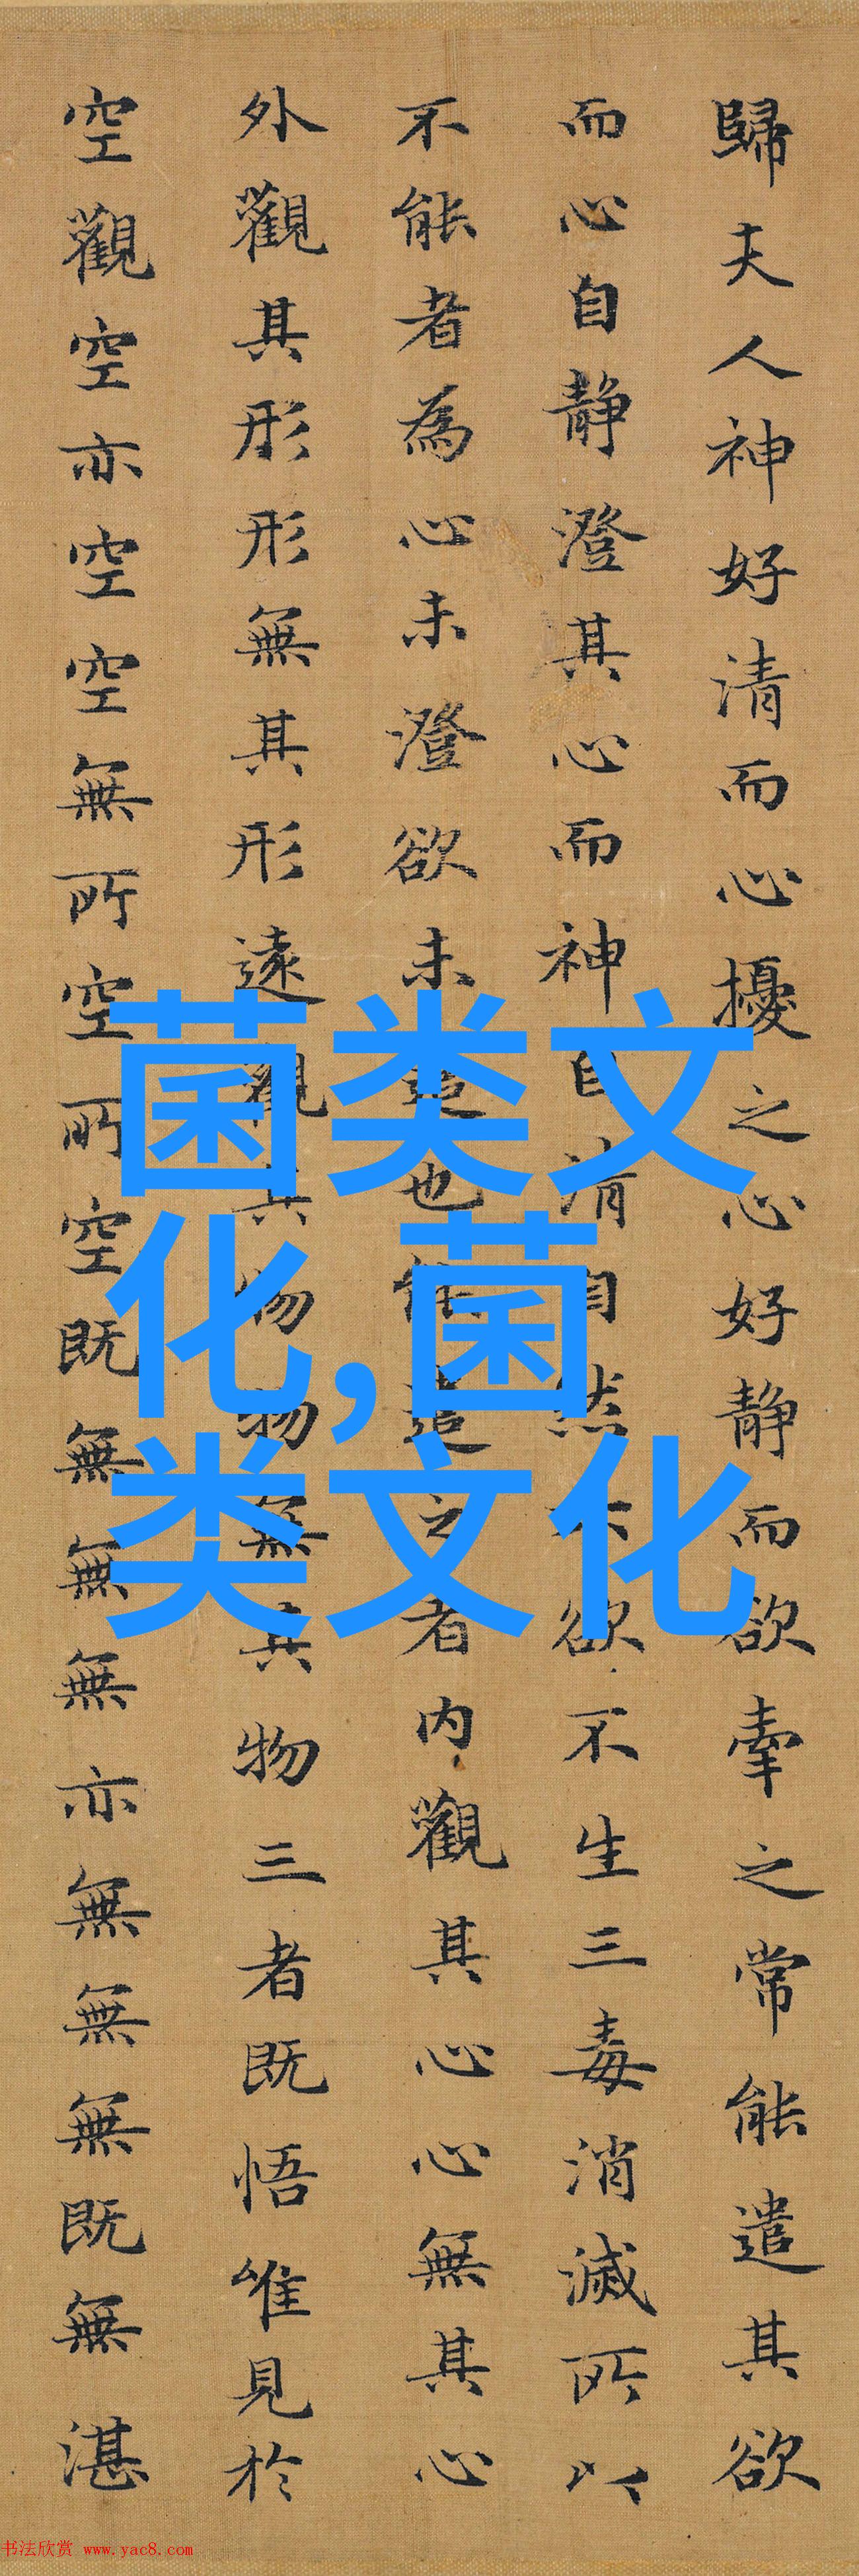 歸夫人神好清而心擾之心好静而欲牽之常能遣其欲
而心自静澄其心而神自清自然六欲不生三毒消滅所以
不能者為心未澄欲未遣也能遣之者内觀其心心無其心
外觀其形形無其形遠觀其物物無其物三者既悟唯見於
空觀空亦空空無所空所空既無無無亦無無無既無湛
菌类文
化,菌
类文化
书法欣赏 www.yac8.com